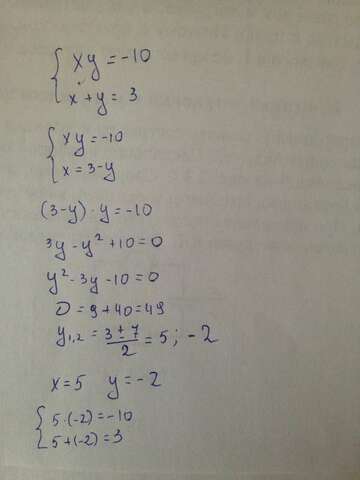 { xy = -10
x + y = 3
{ xy = -10
x = 3 - y
(3-y) · y = -10
3y - y² + 10 = 0
y² - 3y - 10 = 0
D = 9 + 40 = 49
y₁,₂ = (3 ± 7)/2 = 5; -2
x = 5 y = -2
{ 5·(-2) = -10
5 + (-2) = 3